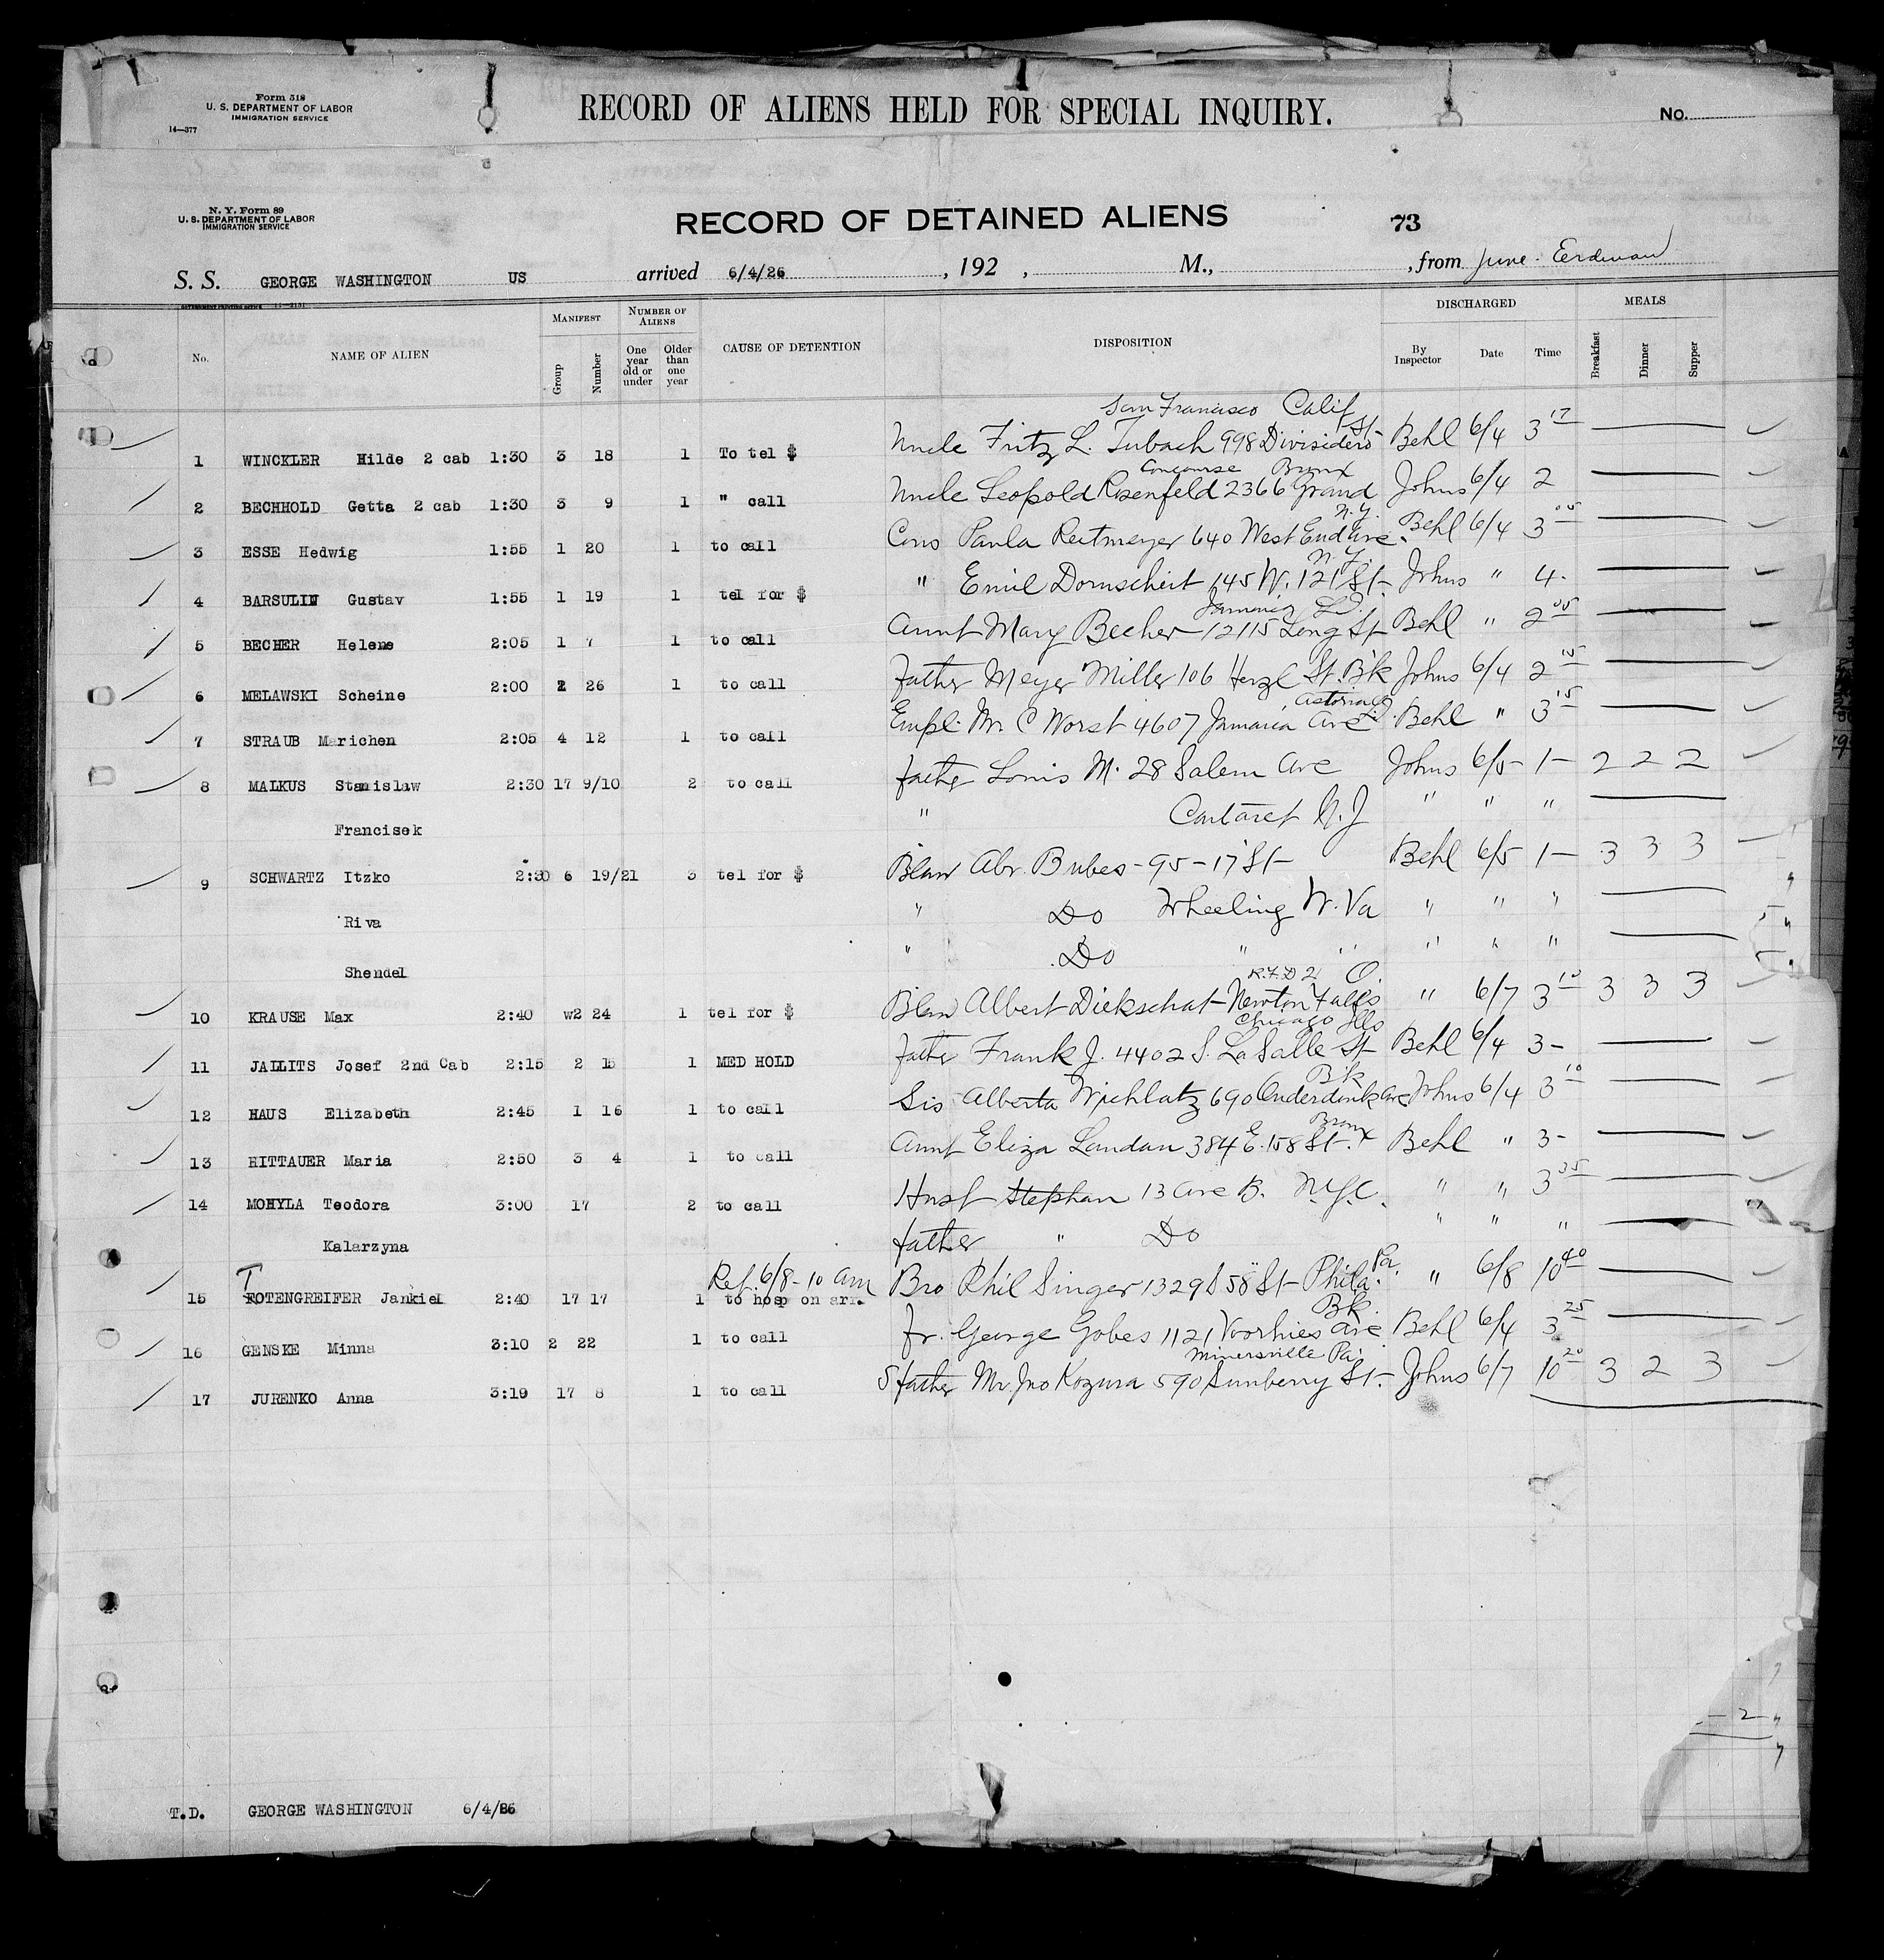 Form 518
U. S. DEPARTMENT OF LABOR
IMMIGRATION SERVICE
14—377
RECORD OF ALIENS HELD FOR SPECIAL INQUIRY.
No.
N. Y. Form 89
U. S. DEPARTMENT OF LABOR
IMMIGRATION SERVICE
RECORD OF DETAINED ALIENS
73
S. S. GEORGE WASHINGTON US arrived 6/4/26, 192 , M., , from June Eerdman
No. NAME OF ALIEN MANIFEST Group Number NUMBER OF ALIENS One year old or under Older than one year CAUSE OF DETENTION DISPOSITION DISCHARGED By Inspector Date Time MEALS Breakfast Dinner Supper
San Francisco Calif
1 WINCKLER Hilde 2 cab 1:30 3 18 1 To tel $ Uncle Fritz L. Tubach 998 Divisidero St Behl 6/4 3 17
Concourse Bronx
2 BECHHOLD Getta 2 cab 1:30 3 9 1 " call Uncle Leopold Rosenfeld 2366 Grand Johns 6/4 2
N.Y.
3 ESSE Hedwig 1:55 1 20 1 to call Cous Paula Reitmeyer 640 West End Ave. Behl 6/4 3 05
N.Y.
4 BARSULIN Gustav 1:55 1 19 1 tel for $ " Emil Dornscheit 145 W. 121 St- Johns " 4.
Jamaica L.I.
5 BECHER Helene 2:05 1 7 1 to call Aunt Mary Becher 12115 Long St Behl " 2 05
6 MELAWSKI Scheine 2:00 2 26 1 to call Father Meyer Miller 106 Herzl St. B'k Johns 6/4 2 15
Astoria L.I.
7 STRAUB Marichen 2:05 4 12 1 to call Empl. Mr. C Worst 4607 Jamaica Ave Behl " 3 15
8 MALKUS Stanislaw 2:30 17 9/10 2 to call father Louis M. 28 Salem Ave Johns 6/5 1— 2 2 2
Francisek " Cartaret N.J " " "
9 SCHWARTZ Itzko 2:30 6 19/21 3 tel for $ Blaw Abr. Bubes - 95 - 17" St- Behl 6/5 1— 3 3 3
Riva " Do Wheeling W. Va " " "
Shendel " Do " " " " "
R.F.D 2 O.
10 KRAUSE Max 2:40 w2 24 1 tel for $ Blaw Albert Diekschat- Newton Falls " 6/7 3 10 3 3 3
Chicago Ills
11 JALLITS Josef 2nd Cab 2:15 2 15 1 MED HOLD Father Frank J. 4402 S. La Salle St Behl 6/4 3-
B'k
12 HAUS Elizabeth 2:45 1 16 1 to call Sis Alberta Wichlatz 690 Onderdonk Ave Johns 6/4 3 10
Bronx
13 HITTAUER Maria 2:50 3 4 1 to call Aunt Eliza Landau 384 E. 158 St. Behl " 3-
14 MOHYLA Teodora 3:00 17 2 to call Husb Stephan 13 Ave B. N.Y.C. " " 3 35
Kalarzyna father " Do " " "
T Ref. 6/8 - 10 am Pa.
15 ROTENGREIFER Jankiel 2:40 17 17 1 to hosp on arr. Bro Phil Singer 1329 S 58" St- Phila. " 6/8 10 40
Bk.
16 GENSKE Minna 3:10 2 22 1 to call Fr. George Gobes 1121 Voorhies Ave Behl 6/4 3 25
Minersville Pa.
17 JURENKO Anna 3:19 17 8 1 to call S father Mr. Jno Kozura 590 Sunberry St.- Johns 6/7 10 20 3 2 3
T.D. GEORGE WASHINGTON 6/4/26